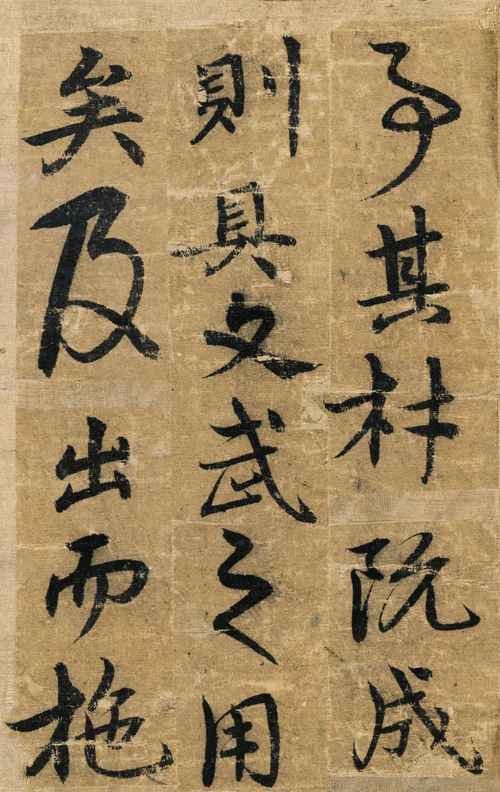 予其材既成
則具文武之用
矣及出而施